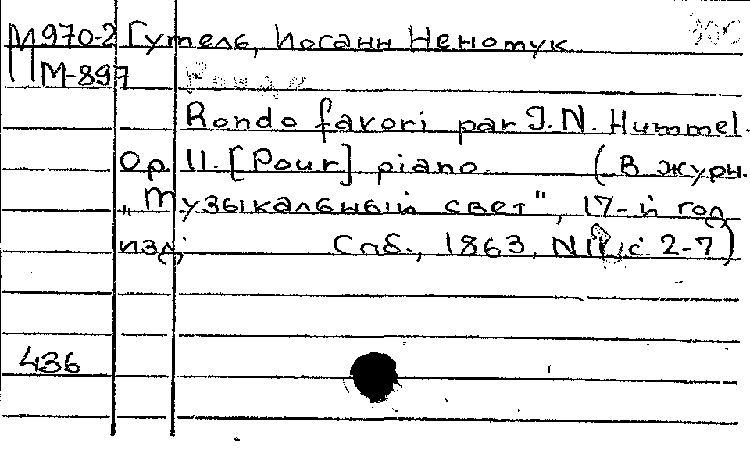 М970-2 Гутель, Иоганн Неномук
М-897
Rondo favori par J. N. Hummel.
Op. 11. [Pour] piano (В журн.
„Музыкальный свет", 17-й год
изд. Спб., 1863, N с. 2-7)
436